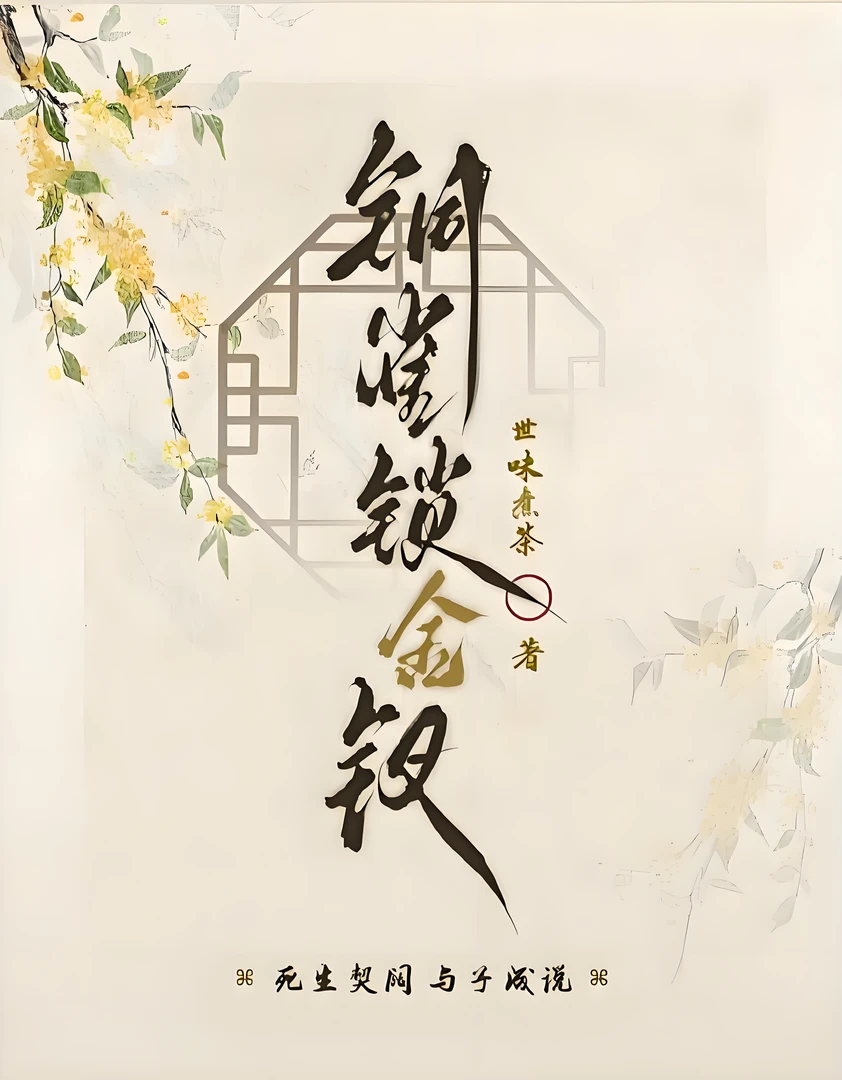 铜雀锁金钗
世味煮茶 著
死生契阔 与子成说